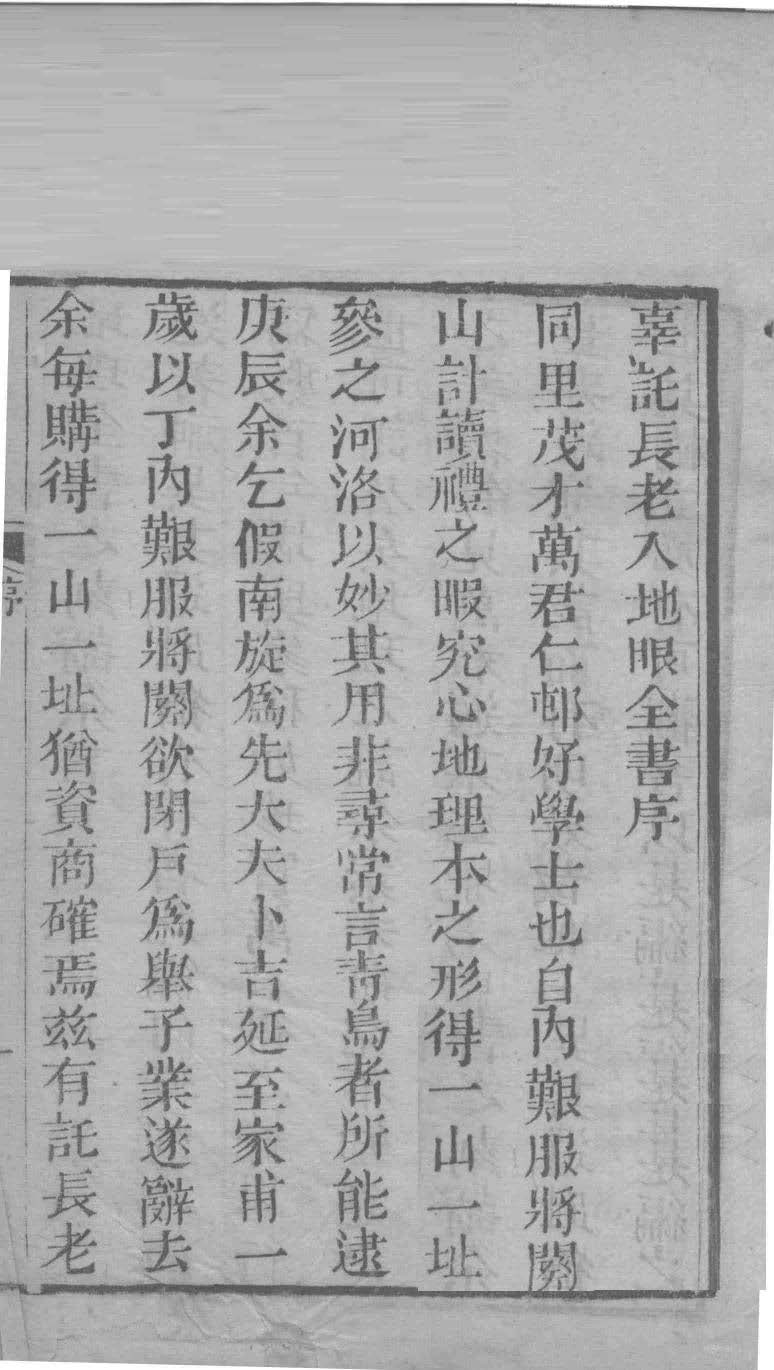 辜託長老入地眼全書序
同里茂才萬君仁邨好學士也自內艱服將闋
山計讀禮之暇究心地理本之形得一山一址
參之河洛以妙其用非尋常言靑鳥者所能逮
庚辰余乞假南旋爲先大夫卜吉延至家甫一
歲以丁內艱服將闋欲閉戸爲舉子業遂辭去
余每購得一山一址猶資商確焉兹有託長老
序